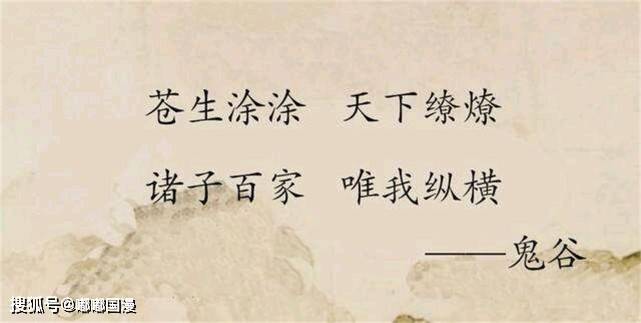 苍生涂涂 天下缭燎
诸子百家 唯我纵横
——鬼谷
搜狐号@嘟嘟国漫